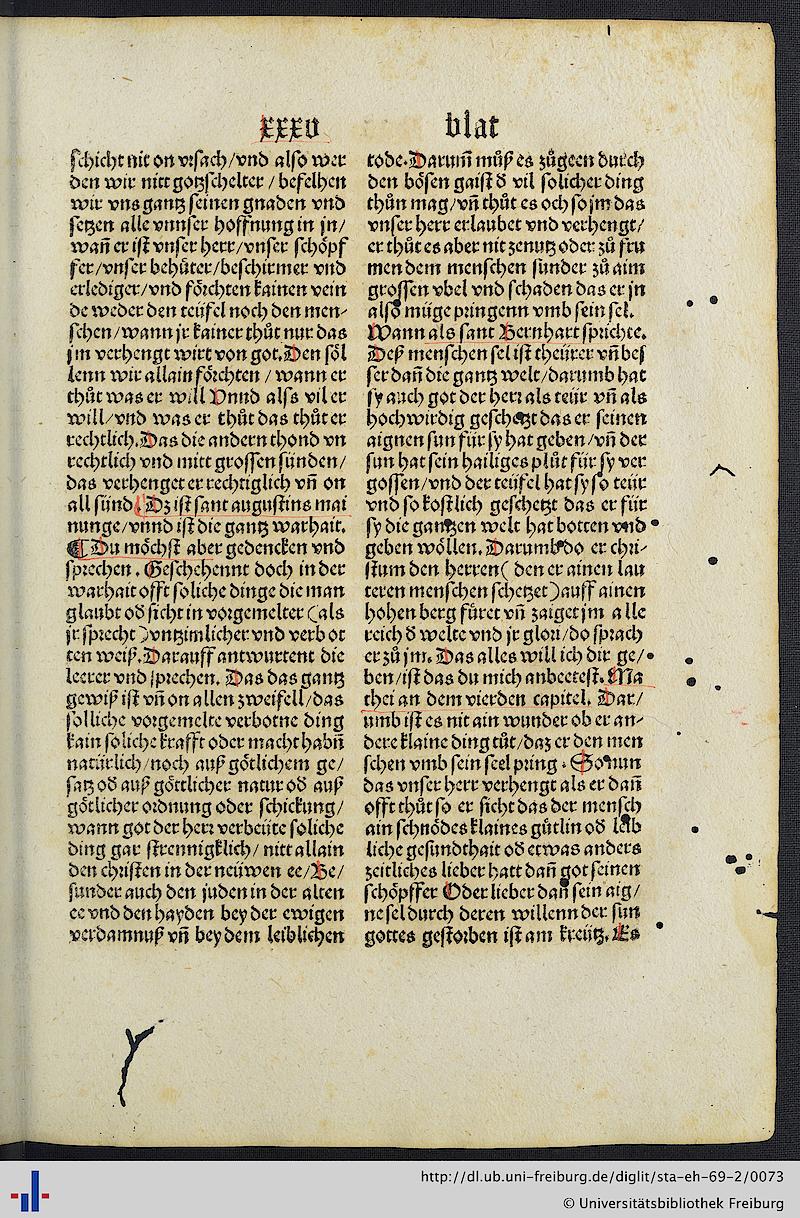 xxxv blat
schicht nit on vrsach/vnd also wer
den wir nitt gotzschelter / befelhen
wir vns gantz seinen gnaden vnd
setzen alle vnnser hoffnung in jn/
wañ er ist vnser herr/vnser schöpf
fer/vnser behüter/beschirmer vnd
erlediger/vnd förchten kainen vein
de weder den teüfel noch den men-
schen/wann jr kainer thůt nur das
jm verhengt wirt von got. Den söl
lenn wir allain förchten / wann er
thůt was er will Vnnd alss vil er
will/vnd was er thůt das thůt er
rechtlich. Das die andern thond vn
rechtlich vnd mitt grossen sünden/
das verhenget er rechtiglich vñ on
all sünd. Dz ist sant augustins mai
nunge/vnnd ist die gantz warhait.
¶ Du möchst aber gedencken vnd
sprechen . Geschehennt doch in der
warhait offt soliche dinge die man
glaubt od sicht in vorgemelter (als
jr sprecht )vntzimlicher vnd verbot
ten weiß. Darauff antwurtent die
leerer vnd sprechen. Das das gantz
gewiß ist vñ on allen zweifell/das
solliche vorgemelte verbotne ding
kain soliche krafft oder macht habñ
natürlich/noch auß götlichem ge/
satz od auß göttlicher natur od auß
götlicher ordnung oder schickung/
wann got der herr verbeüte soliche
ding gar strennigklich/ nitt allain
den christen in der neüwen ee/Be/
sunder auch den juden in der alten
ee vnd den hayden bey der ewigen
verdamnuß vñ bey dem leiblichen
tode. Darum̃ můß es zůgeen durch
den bösen gaist d vil solicher ding
thůn mag/vñ thůt es och so jm das
vnser herr erlaubet vnd verhengt/
er thůt es aber nit zenutz oder zů fru
men dem menschen sunder zů aim
grossen vbel vnd schaden das er jn
also müge pringenn vmb sein sel.
Wann als sant Bernhart sprichte.
Deß menschen sel ist theürer vñ bes
ser dañ die gantz welt/darumb hat
sy auch got der herr als teür vñ als
hochwirdig geschetzt das er seinen
aignen sun für sy hat geben/vñ der
sun hat sein hailiges plůt für sy ver
gossen/vnd der teüfel hat sy so teür
vnd so kostlich geschetzt das er für
sy die gantzen welt hat botten vnd
geben wöllen. Darumb do er chri-
stum den herren( den er ainen lau
teren menschen schetzet)auff ainen
hohen berg füret vñ zaiget jm alle
reich d welte vnd jr glori/do sprach
er zů jm. Das alles will ich dir ge/
ben/ist das du mich anbeetest. Ma
thei an dem vierden capitel. Dar/
umb ist es nit ain wunder ob er an-
dere klaine ding tůt/daz er den men
schen vmb sein seel pring . So nun
das vnser herr verhengt als er dañ
offt thůt so er sicht das der mensch
ain schnödes klaines gůtlin od leib
liche gesundthait od etwas anders
zeitliches lieber hatt dañ got seinen
schöpffer Oder lieber dañ sein aig/
ne sel durch deren willenn der sun
gottes gestorben ist am kreütz. Es
http://dl.ub.uni-freiburg.de/diglit/sta-eh-69-2/0073
© Universitätsbibliothek Freiburg